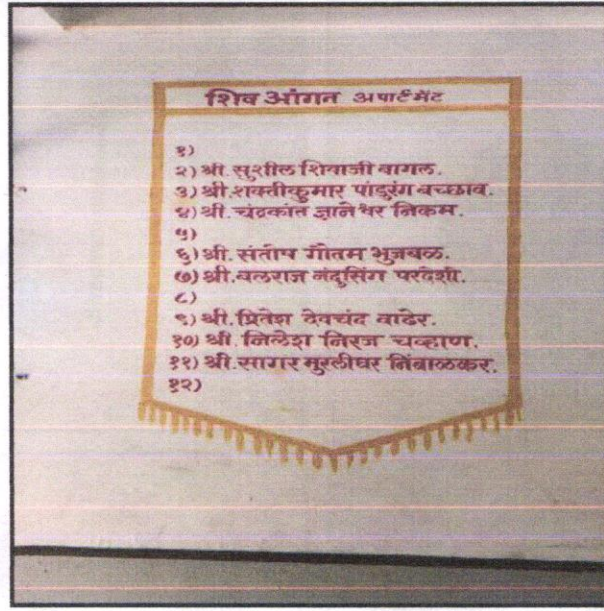 शिव आंगन अपार्टमेंट
१)
२) श्री. सुशील शिवाजी बागल.
३) श्री. शक्तीकुमार पांडुरंग बच्छाव.
४) श्री. चंद्रकांत ज्ञानेश्वर निकम.
५)
६) श्री. संतोष गौतम भुजबळ.
७) श्री. बलराज नंदुसिंग परदेशी.
८)
९) श्री. प्रितेश देवचंद वाढेर.
१०) श्री. निलेश निरज चव्हाण.
११) श्री. सागर मुरलीधर निंबाळकर.
१२)